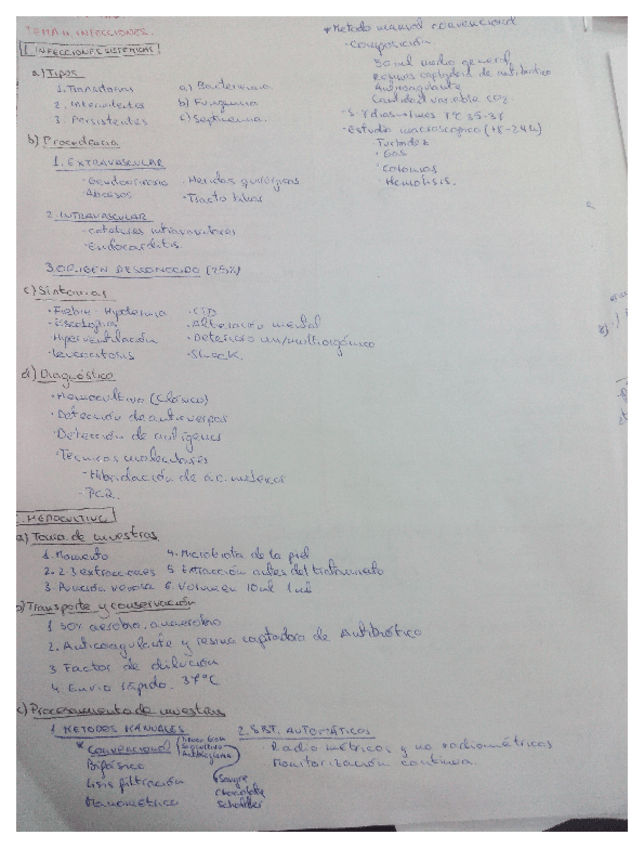 TEMA 11. INFECCIONES.
1. INFECCIONES SISTÉMICAS
a) Tipos
1. Transitorias a) Bacteriemia
2. Intermitentes b) Fungemia
3. Persistentes c) Septicemia.
b) Procedencia
1. EXTRAVASCULAR
· Genitourinario · Heridas quirúrgicas
Abscesos · Tracto biliar
2. INTRAVASCULAR
- catéteres intravasculares
- Endocarditis.
3. ORIGEN DESCONOCIDO (25%)
c) Síntomas
· Fiebre - Hipotermia · CID
· Escalofríos · Alteración mental
Hiperventilación · Deterioro uni/multiorgánico
· Leucocitosis · Shock.
d) Diagnóstico
· Hemocultivo (Clásico)
· Detección de anticuerpos
· Detección de antígenos
· Técnicas moleculares
- Hibridación de ac. nucleicos
- PCR.
HEMOCULTIVO
a) Toma de muestras
1. Momento 4. Microbiota de la piel
2. 2 3 extracciones 5 Extracción antes del tratamiento
3. Punción venosa 6. Volumen 10ml 1ml
b) Transporte y conservación
1 aerobio, anaerobio
2. Anticoagulante y resina captadora de Antibiótico
3 Factor de dilución
4. Envío rápido. 37ºC
c) Procesamiento de muestras
1 METODOS MANUALES 2. SIST. AUTOMÁTICOS
* Convencional Subcultivo Antibiograma · Radiométricos y no radiométricos
Bifásico Monitorización continua.
Lisis filtración Sangre
Chocolate
Manométrico Schaedler
* Metodo manual convencional
- Composición
50 ml medio general
Resinas captadoras de antibiótico
Anticoagulante
Cantidad variable CO2.
- 5-7 días Tª 35-37
- Estudio macroscópico (18-24h)
· Turbidez
· Gas
· Colonias
· Hemólisis.